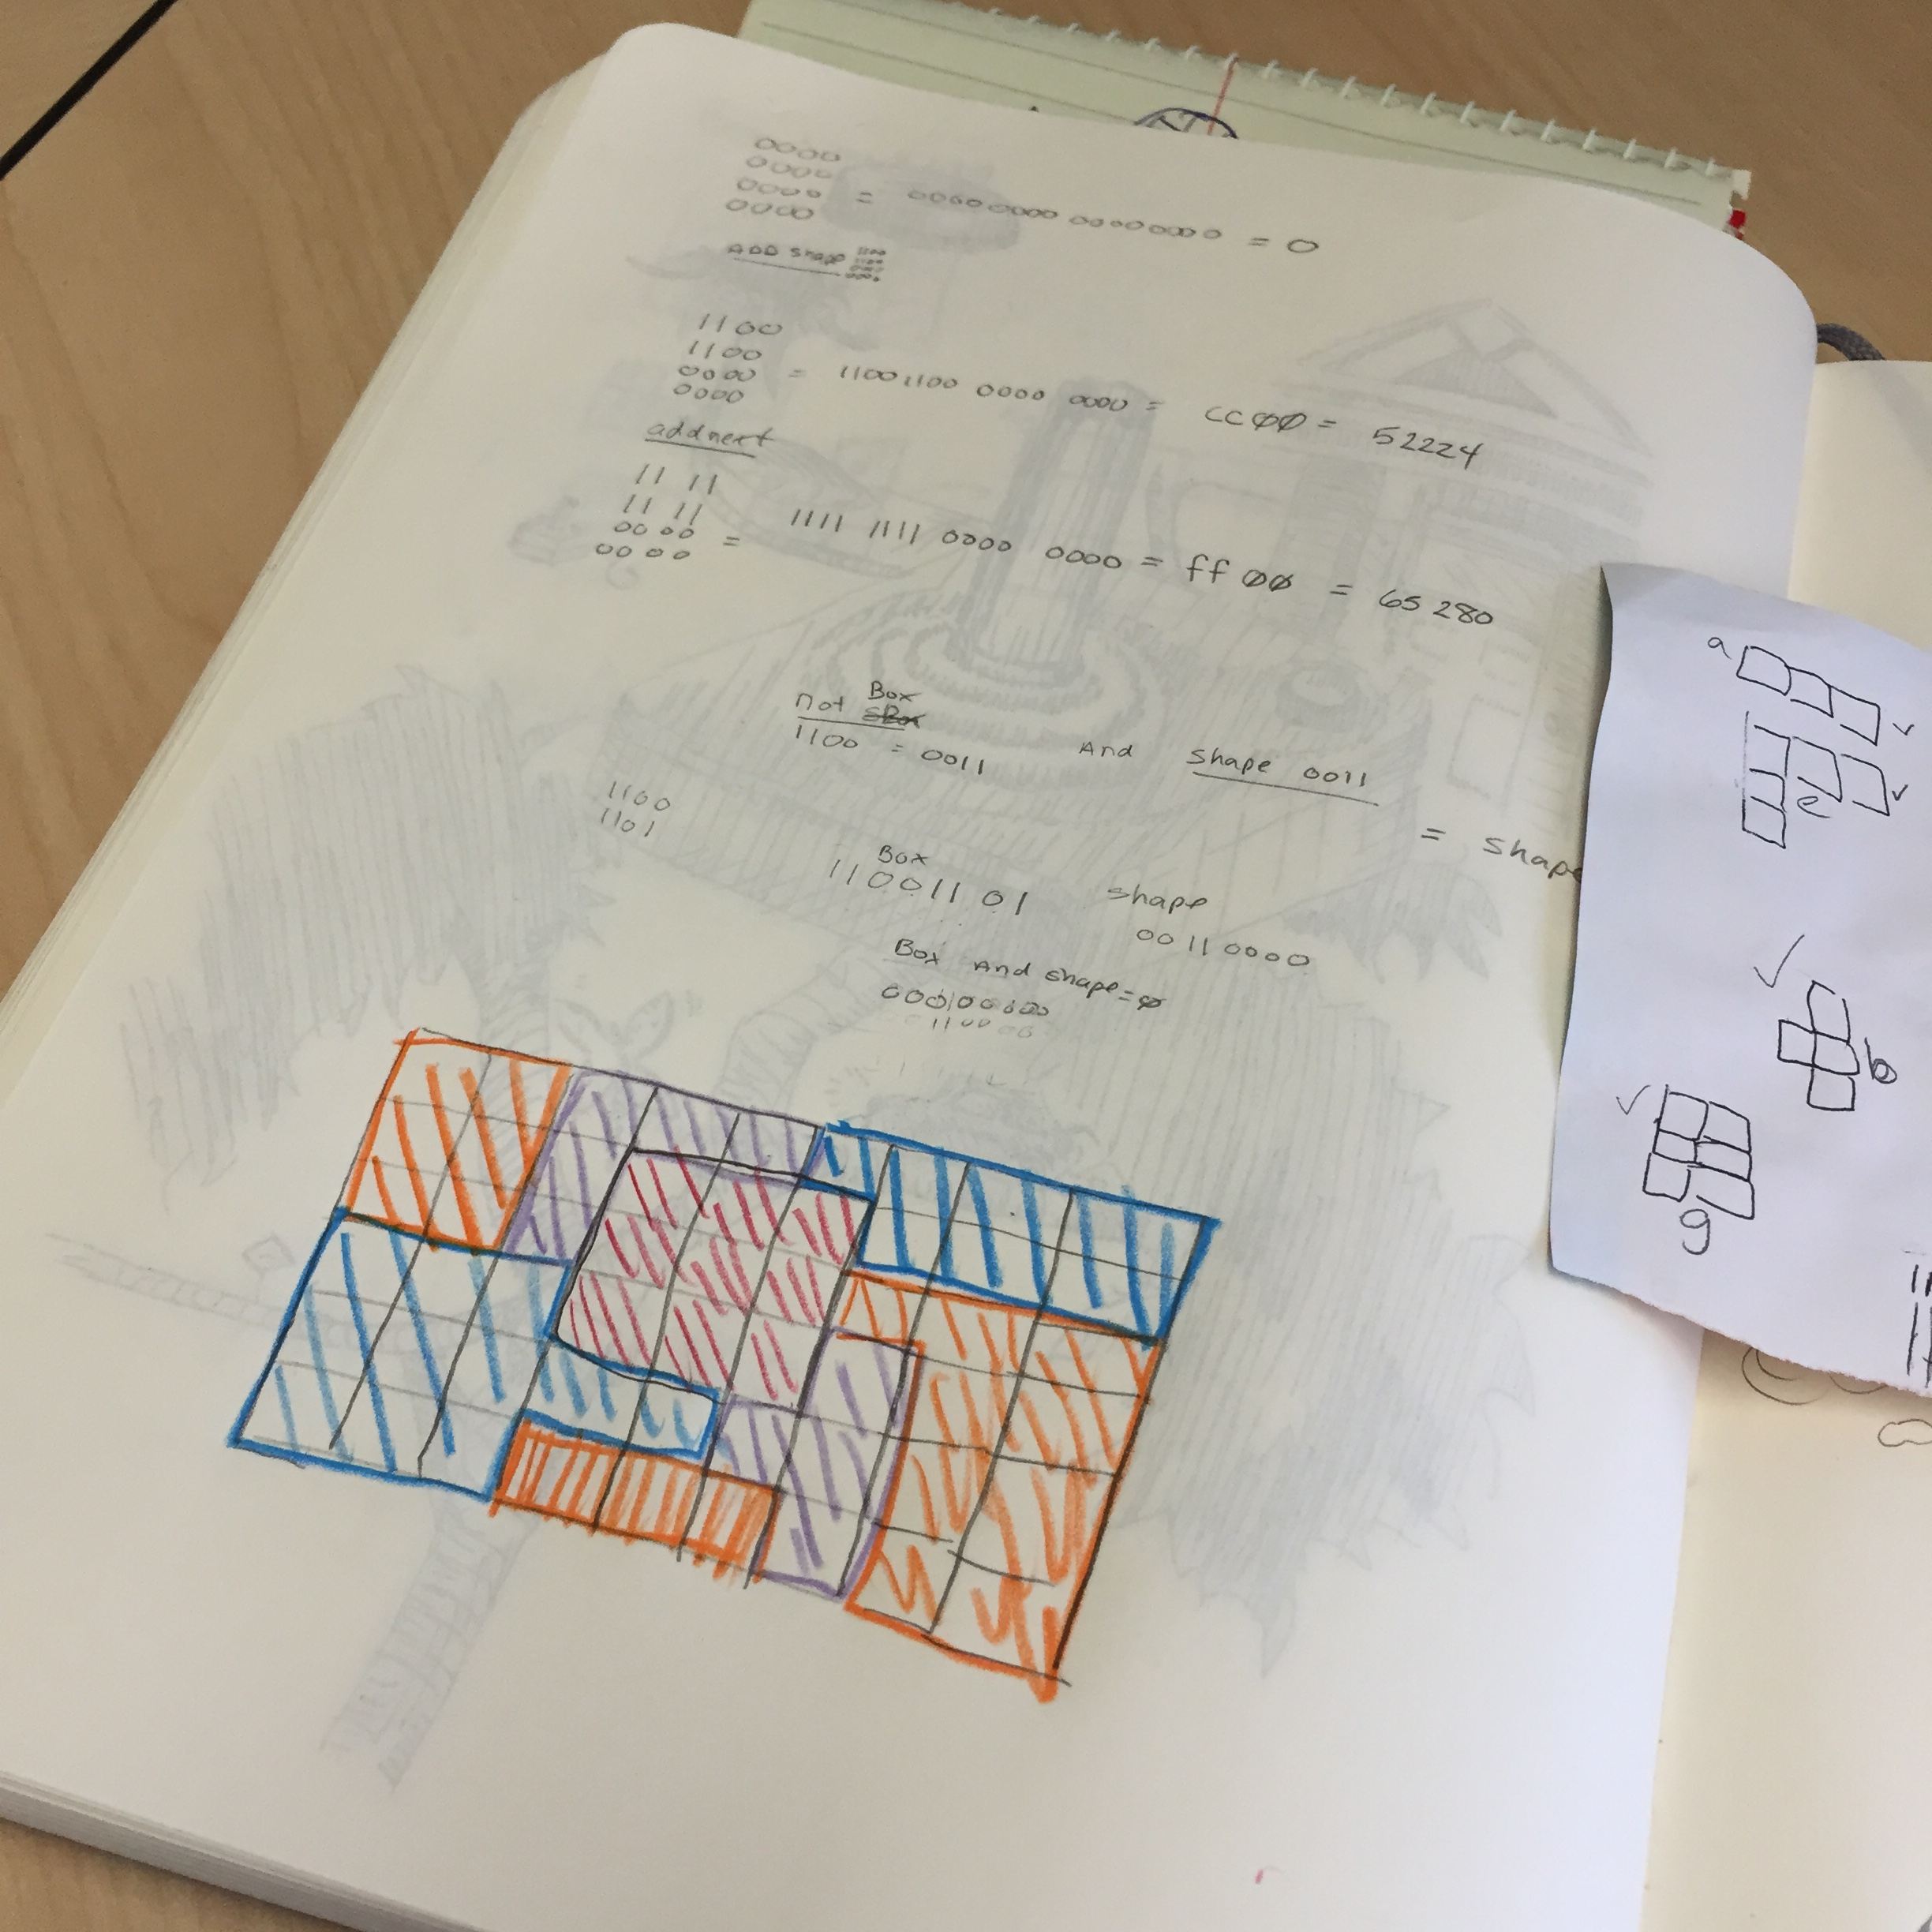 0000
0000
0000 = 0000 0000 0000 0000 = 0
0000
ADD Shape 1100
1100
0000
0000
1100
1100
0000 = 1100 1100 0000 0000 = CC00 = 52224
0000
add next
11 11
11 11
00 00 = 1111 1111 0000 0000 = ff 00 = 65280
00 00
Box
not
1100 = 0011 And Shape 0011
= Shape
1100
1101
Box
11001101
shape
00110000
Box And shape = 0
a
e
b
g